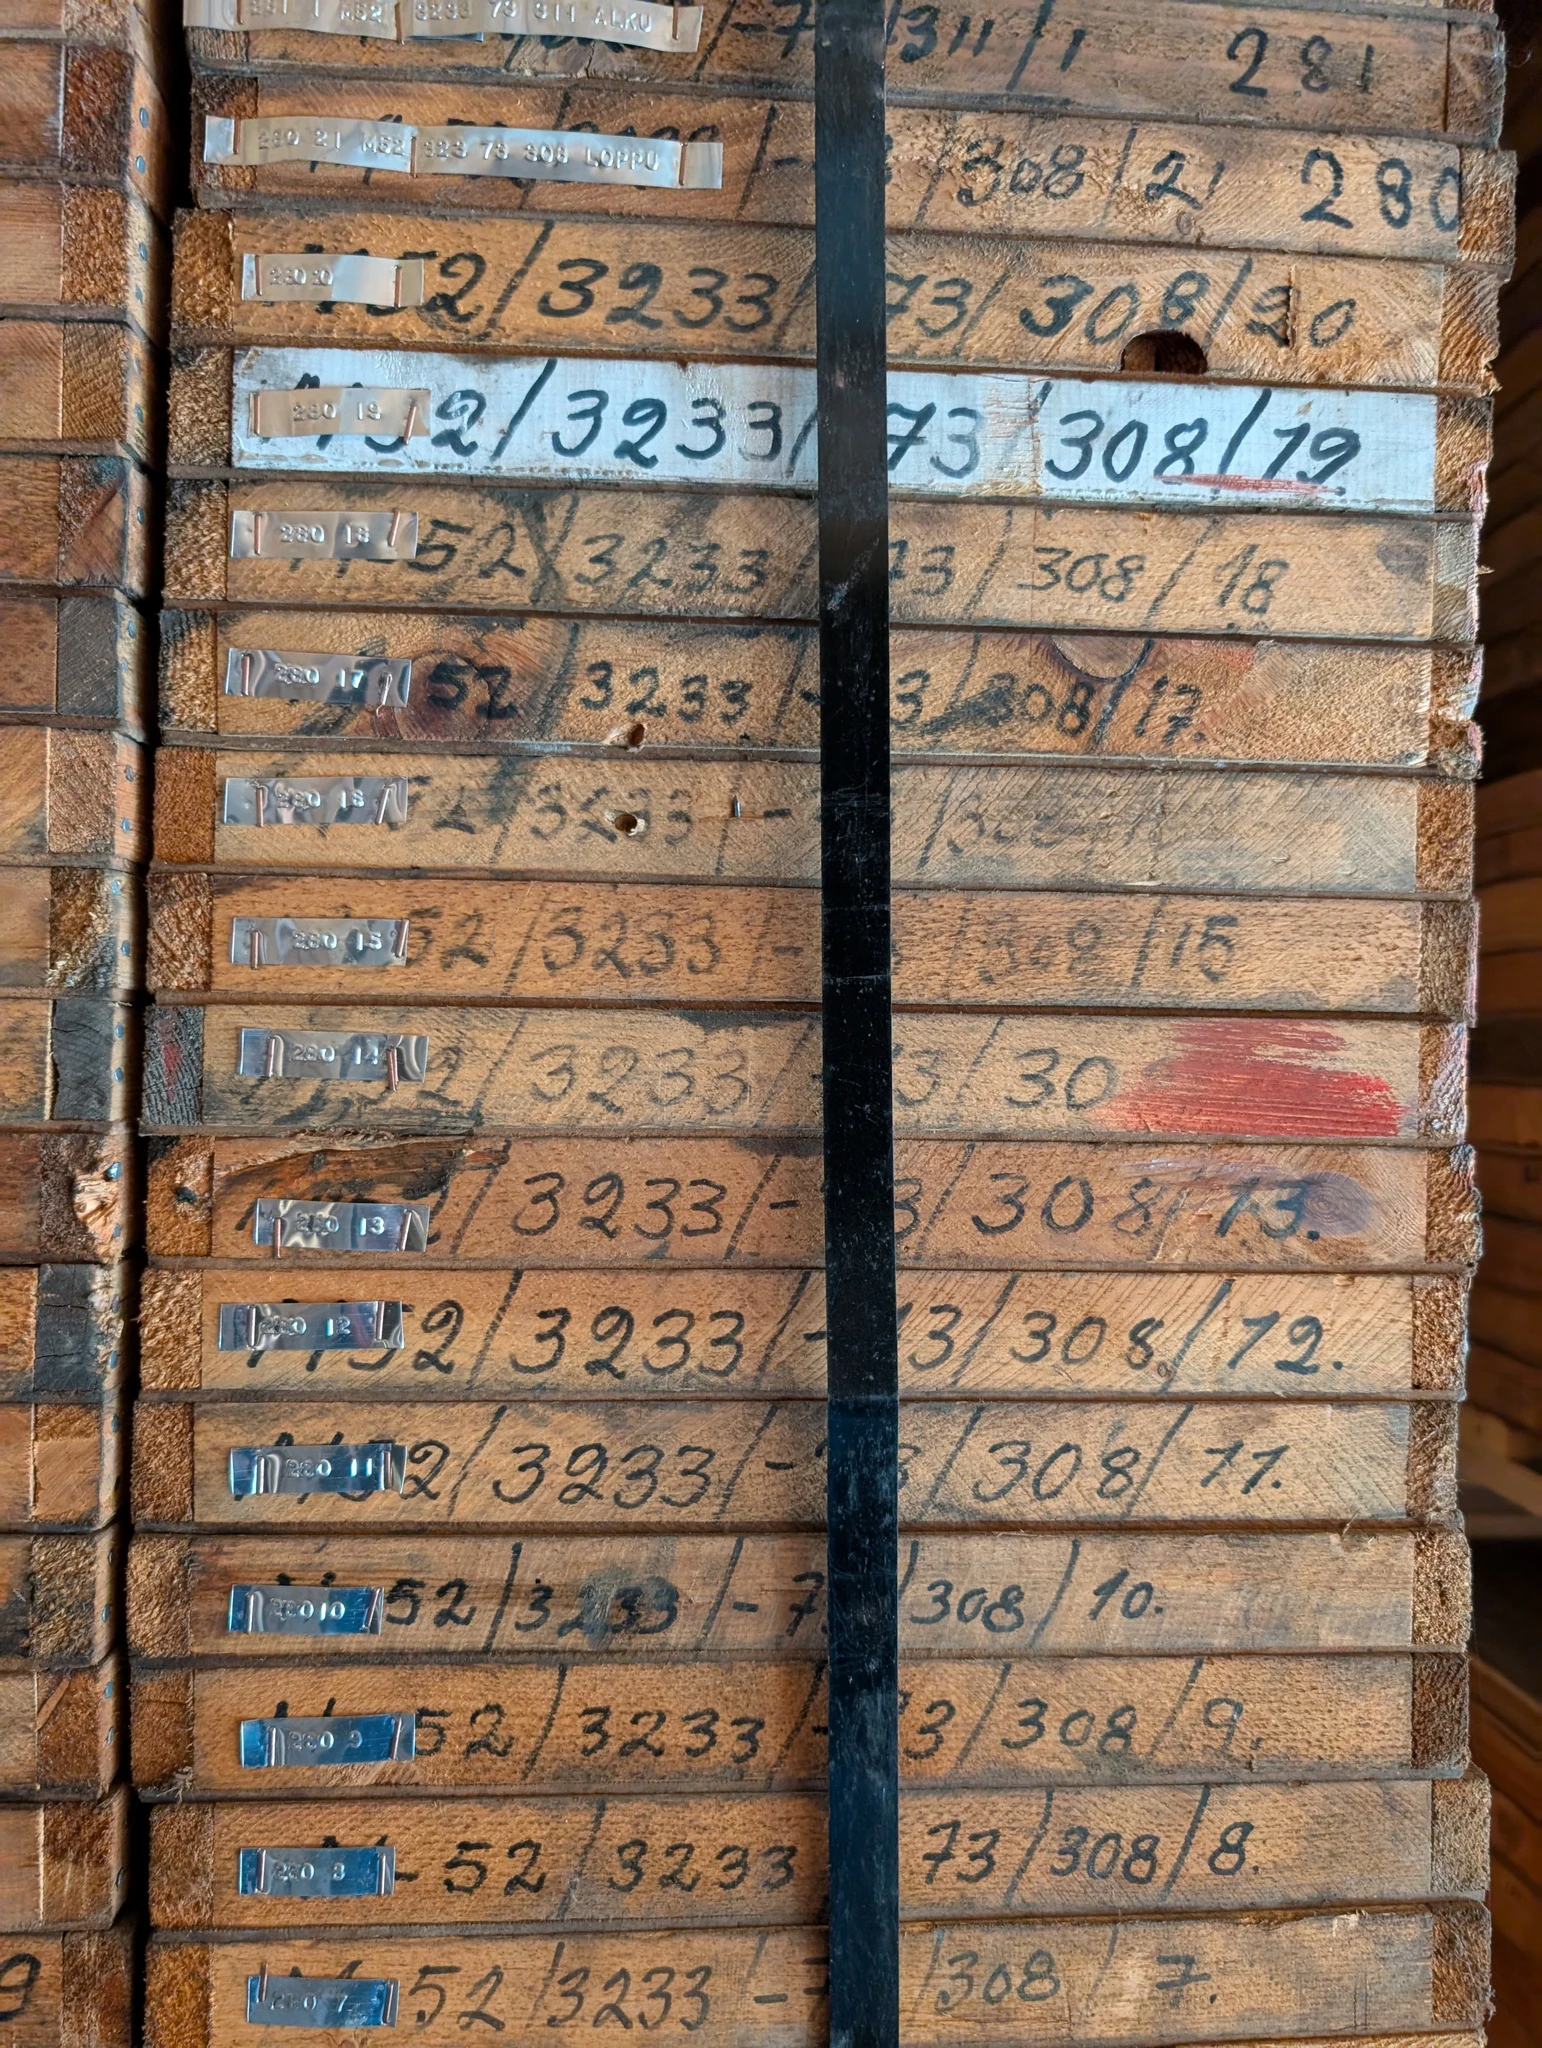 281 1 M52 3233 73 311 ALKU
-7 /311/1 281
280 21 M52 323 73 308 LOPPU
/308/21 280
280 20
52/3233 73/308/20
280 19
52/3233/73/308/19
280 18
M-52/3233/73/308/18
280 17
52 3233 - 3/308/17.
280 16
52/3233/-
280 15
52/3233/- /308/15
280 14
52/3233/ 73/30
280 13
/3233/- 3/308/13.
280 12
M52/3233/-73/308/12.
280 11
M52/3233/- 3/308/11.
280 10
52/3233/-7 /308/10.
280 9
52/3233/-73/308/9.
280 8
M-52/3233 73/308/8.
280 7
M-52/3233/-7 /308/7.
9